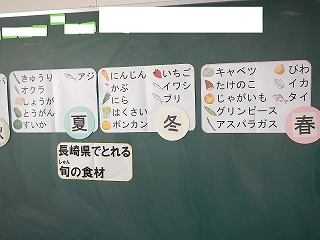 きゅうり アジ
オクラ
しょうが
とうがん
すいか
夏
にんじん いちご
かぶ イワシ
にら ブリ
はくさい
ポンカン
冬
キャベツ びわ
たけのこ イカ
じゃがいも タイ
グリンピース
アスパラガス
春
長崎県でとれる
しゅん
旬の食材